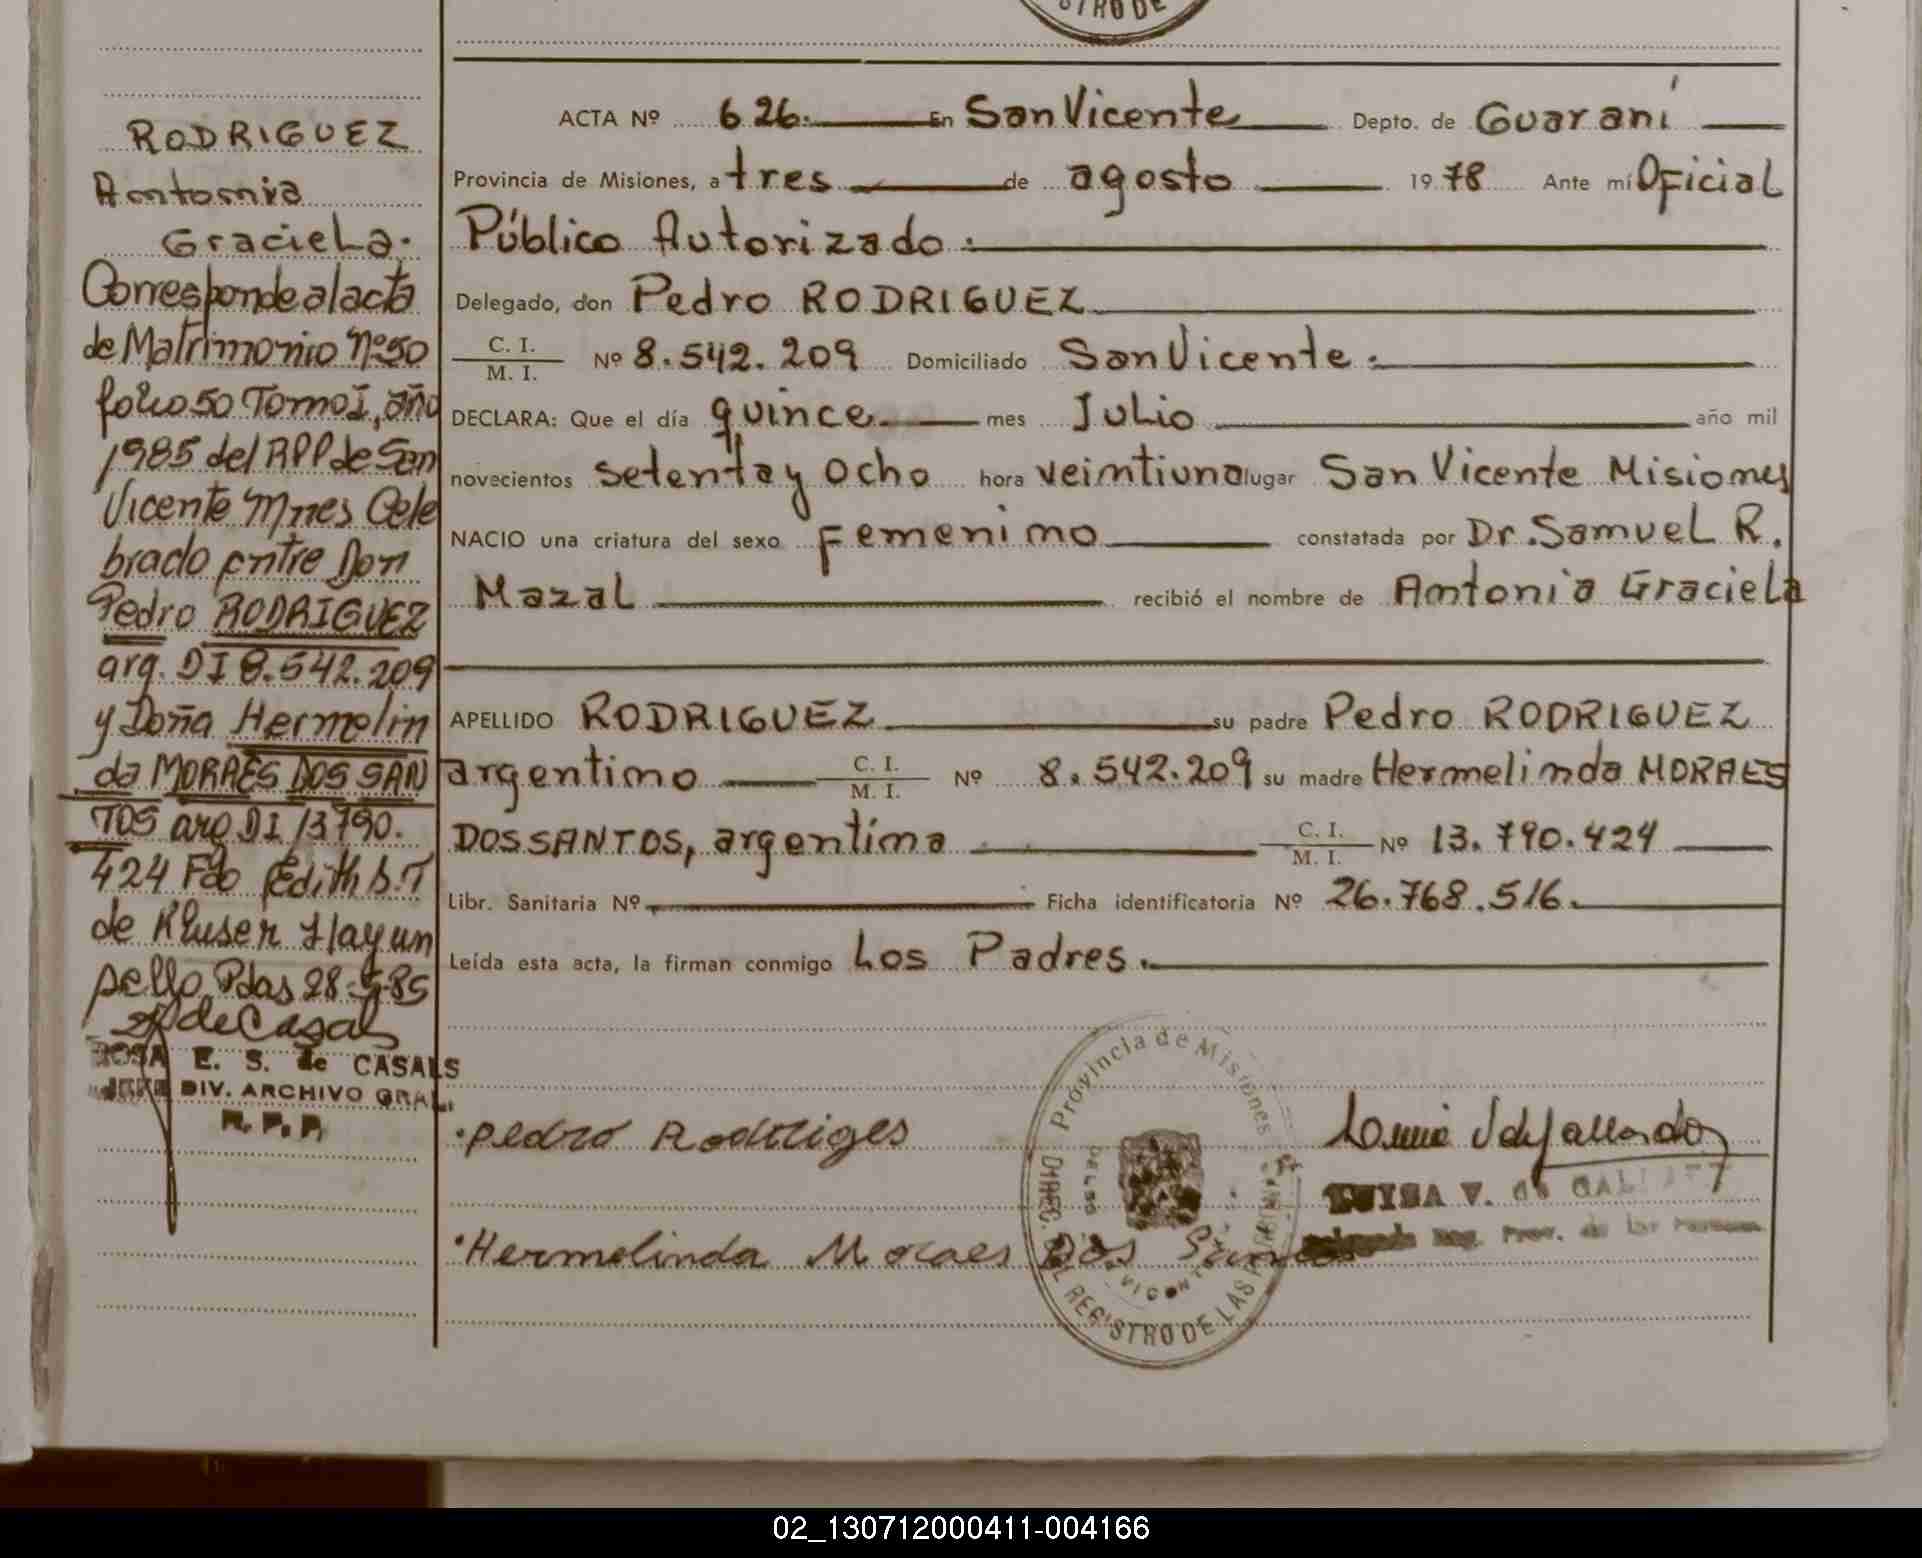 STRO DE
RODRIGUEZ
Antonia
Graciela.
Corresponde al acta
de Matrimonio Nº 50
folio 50 Tomo I, año
1985 del RPP de San
Vicente Mnes Cele
brado entre Don
Pedro RODRIGUEZ
arg. DI 8.542.209
y Doña Hermelin
da MORAES DOS SAN
TOS arg DI 13790.
424 Fdo Edith B.T
de Kluser Hay un
sello Pdas 28-5-85
de Casals
ROSA E. S. de CASALS
JEFE DIV. ARCHIVO GRAL.
R. P. P.
ACTA Nº 626. En San Vicente Depto. de Guaraní
Provincia de Misiones, a tres de agosto 1978 Ante mí Oficial
Público Autorizado.
Delegado, don Pedro RODRIGUEZ
C. I. / M. I. Nº 8.542.209 Domiciliado San Vicente.
DECLARA: Que el día quince mes Julio año mil
novecientos setenta y ocho hora veintiuna lugar San Vicente Misiones
NACIO una criatura del sexo Femenino constatada por Dr. Samuel R.
Mazal recibió el nombre de Antonia Graciela
APELLIDO RODRIGUEZ su padre Pedro RODRIGUEZ
argentino C. I. / M. I. Nº 8.542.209 su madre Hermelinda MORAES
DOS SANTOS, argentina C. I. / M. I. Nº 13.790.424
Libr. Sanitaria Nº Ficha identificatoria Nº 26.768.516.
Leída esta acta, la firman conmigo Los Padres.
Pedro Rodriges
Hermelinda Moraes Dos Santos
Provincia de Misiones
DIREC. GRAL REGISTRO DE LAS PERSONAS
LUISA V. de GALLARDO
Delegada Reg. Prov. de las Personas
02_130712000411-004166